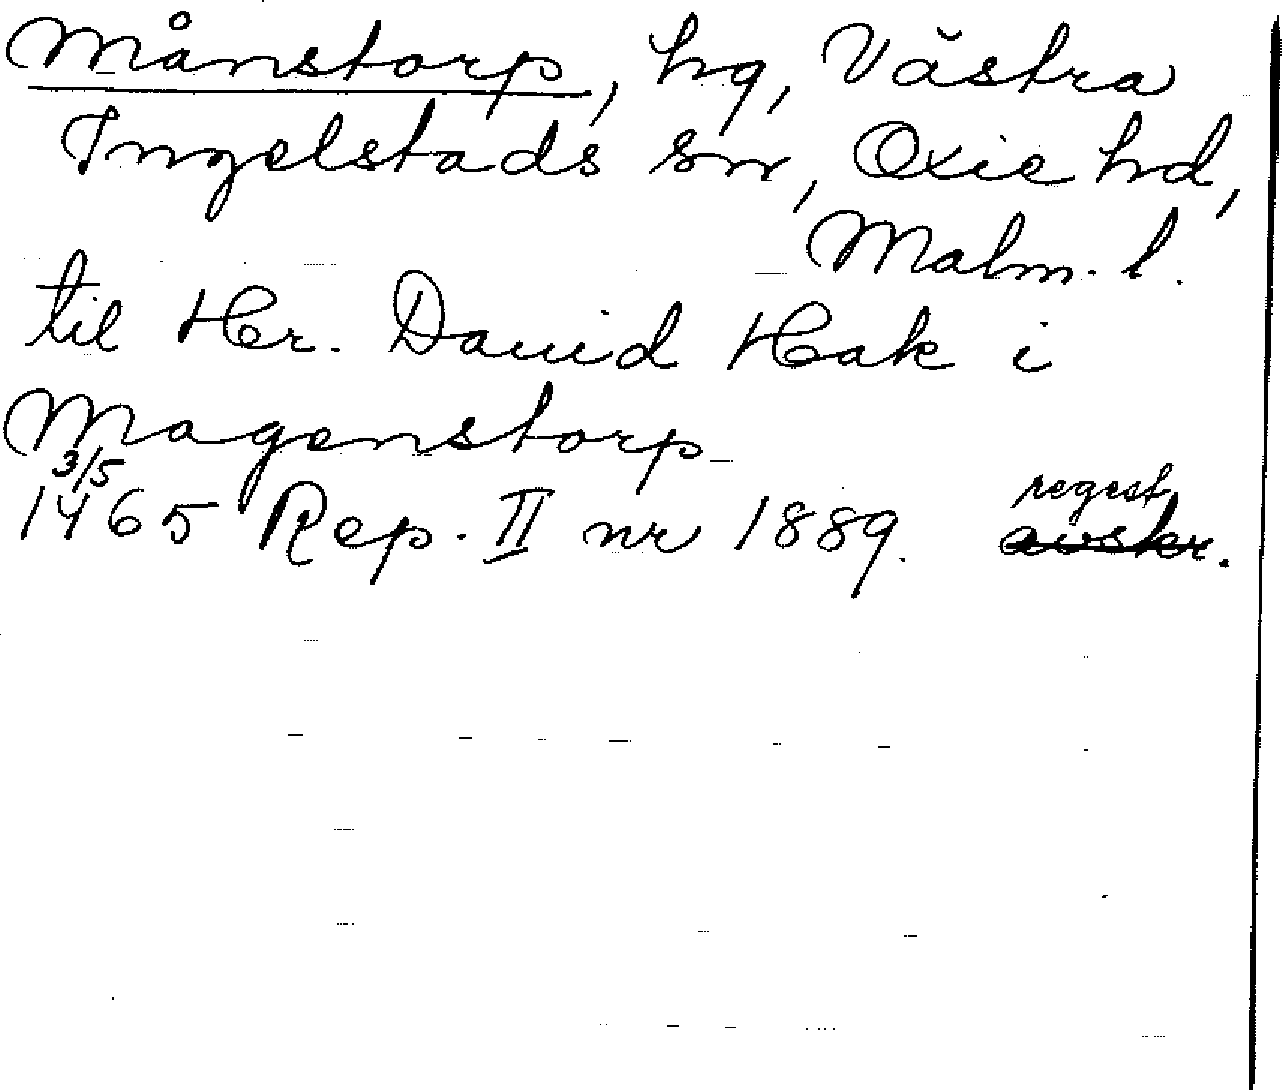 Månstorp, hg, Västra
Ingelstads sn, Oxie hd,
Malm. l.
til Her. Dauid Hak i
Magenstorp
3/5
1465 Rep. II nr 1889. regest
avskr.